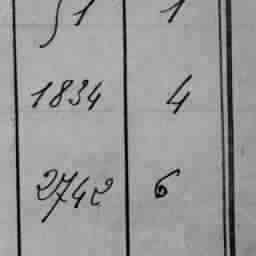 51 1
1834 4
2742 6